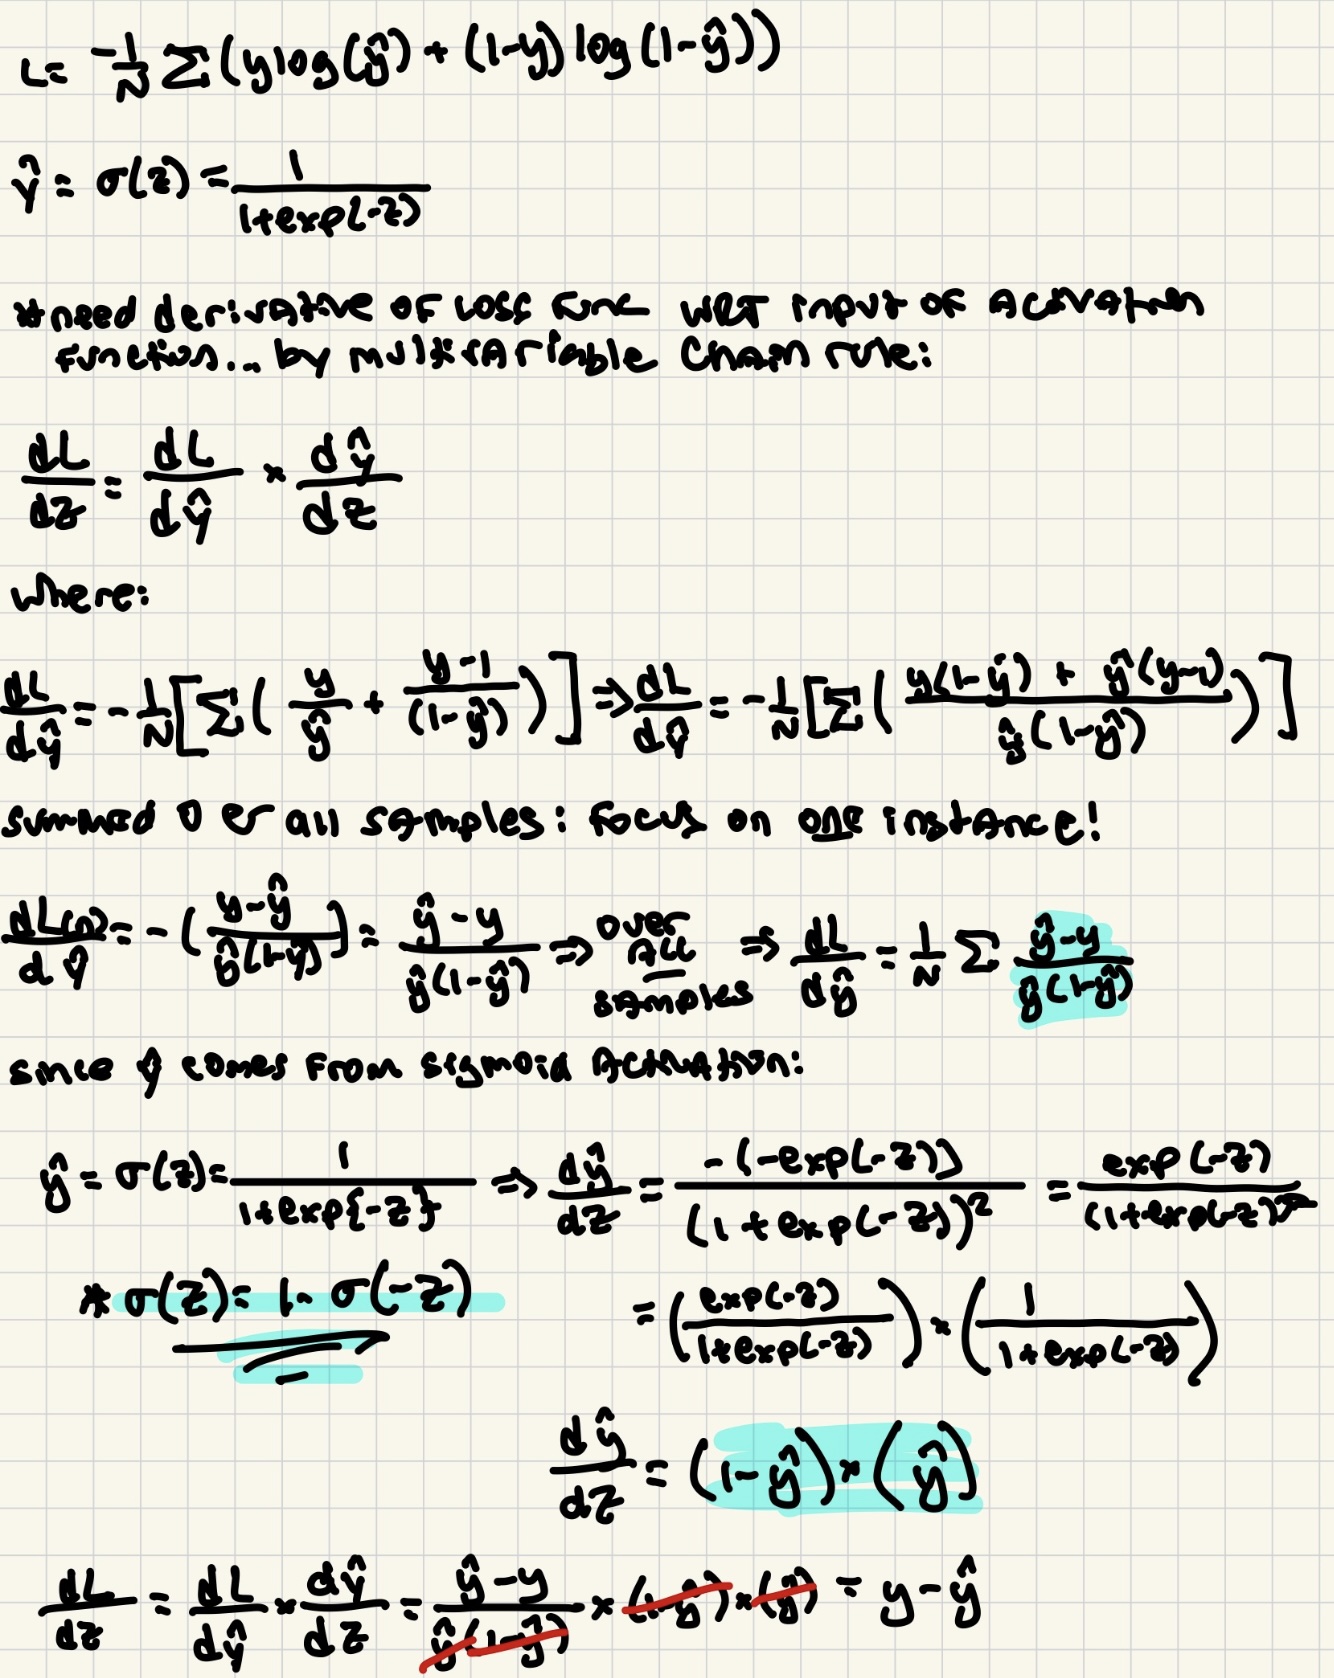 L= -1/N Σ(ylog(ŷ) + (1-y) log(1-ŷ))
ŷ = σ(z) = 1/(1+exp(-z))
*need derivative of loss func WRT input of Activation
function... by multivariable Chain rule:
dL/dz = dL/dŷ × dŷ/dz
where:
dL/dŷ = -1/N [Σ( y/ŷ + (y-1)/(1-ŷ) )] ⇒ dL/dŷ = -1/N [Σ( (y(1-ŷ) + ŷ(y-1))/(ŷ(1-ŷ)) )]
summed over all samples: focus on one instance!
dL(n)/dŷ = -( (y-ŷ)/(ŷ(1-ŷ)) ) = (ŷ-y)/(ŷ(1-ŷ)) ⇒ over ALL samples ⇒ dL/dŷ = 1/N Σ (ŷ-y)/(ŷ(1-ŷ))
since ŷ comes from sigmoid Activation:
ŷ = σ(z) = 1/(1+exp{-z}) ⇒ dŷ/dz = -(-exp(-z))/(1+exp(-z))² = exp(-z)/(1+exp(-z))²
* σ(z) = 1- σ(-z)
= (exp(-z)/(1+exp(-z))) × (1/(1+exp(-z)))
dŷ/dz = (1-ŷ) × (ŷ)
dL/dz = dL/dŷ × dŷ/dz = (ŷ-y)/(ŷ(1-ŷ)) × (1-ŷ) × (ŷ) = y-ŷ